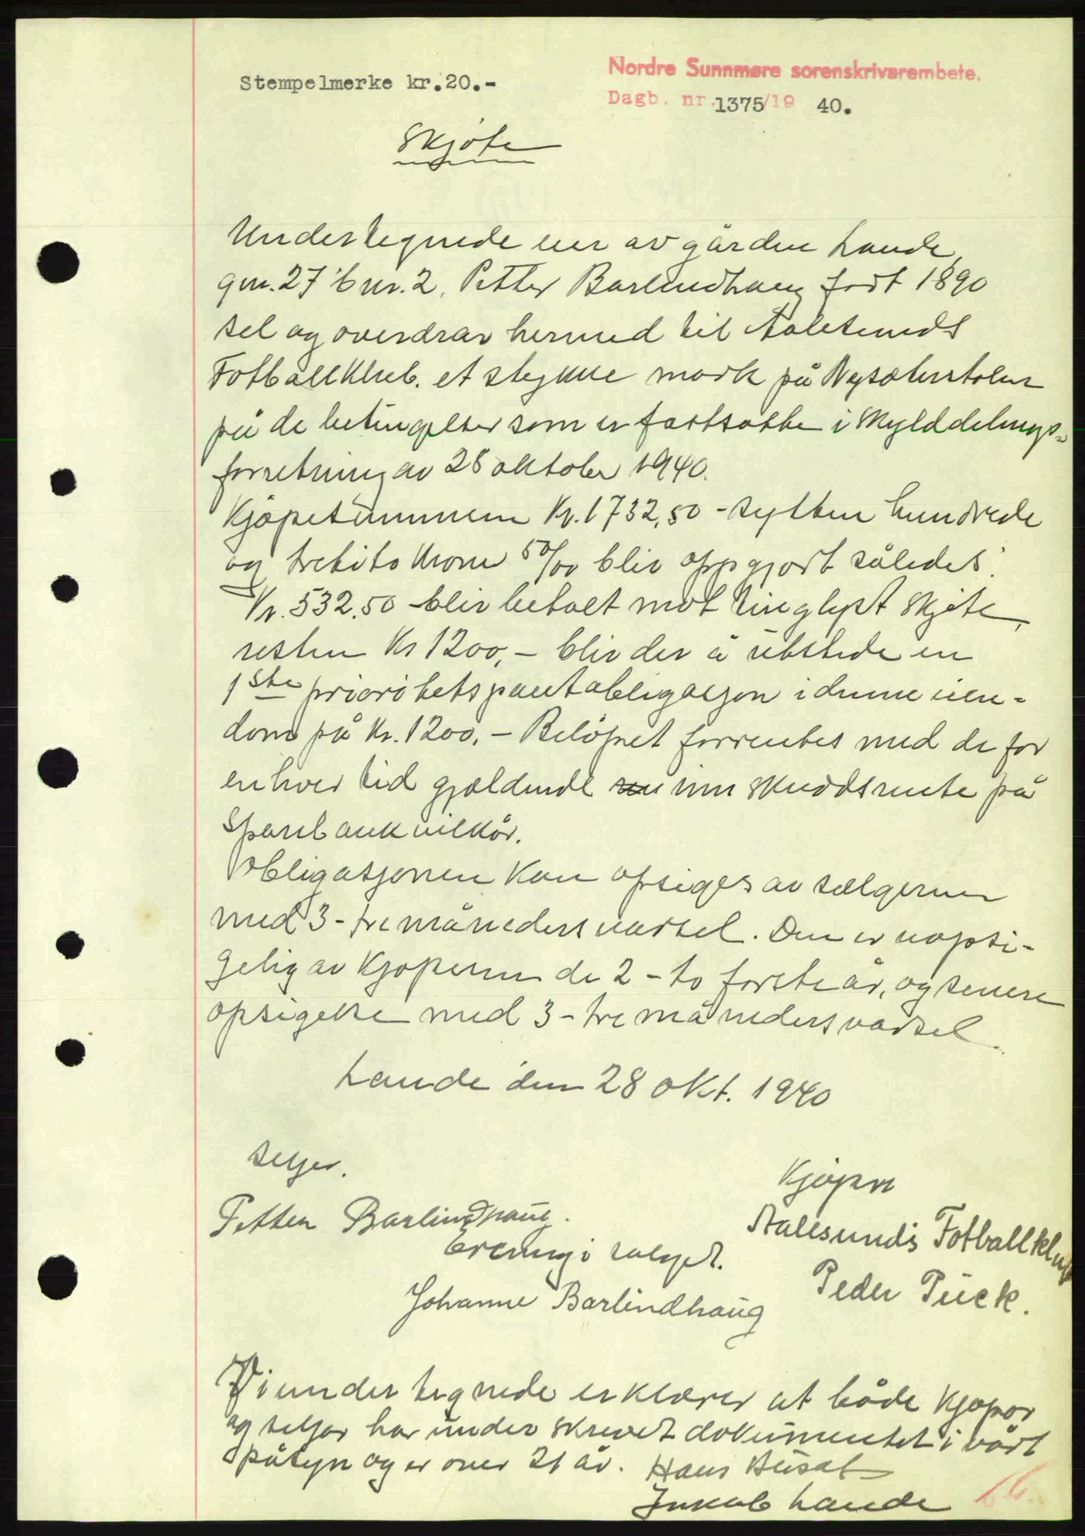 Stempelmerke kr.20.-
Nordre Sunnmøre sorenskriverembete.
Dagb. nr. 1375/19 40.
Skjøte
Undertegnede eier av gården Lande,
gnr. 27 bnr. 2. Petter Barlindhaug født 1890
sel og overdrar hermed til Aalesunds
Fotballklub. et stykke mark på Nysæterstølen
på de betingelser som er fastsatte i skylddelings-
forretning av 28 oktober 1940.
Kjøpesummen Kr. 1732,50 - sytten hundrede
og tretito krone 50/00 blir oppgjort således:
Kr. 532.50 blir betalt mot tinglyst skjøte,
resten Kr 1200,- blir der å utstede en
1ste prioritetspantobligasjon i denne eien-
dom på Kr. 1200,- Beløpet forrentes med de for
enhver tid gjældende innskuddsrente på
Sparebankvilkår.
Obligasjonen kan opsiges av sælgeren
med 3- tre måneders varsel. Den er uopsi-
gelig av kjøperen de 2 - to første år, og senere
opsigelse med 3- tre måneders varsel.
Lande den 28 okt. 1940
Selger.
Kjøper
Petter Barlindhaug.
Aalesunds Fotballklub
Er enig i salget.
Peder Pück.
Johanne Barlindhaug
Vi undertegnede erklærer at både kjøper
og selger har underskrevet dokumentet i vårt
påsyn og er over 21 år. Hans
Jakob Lande